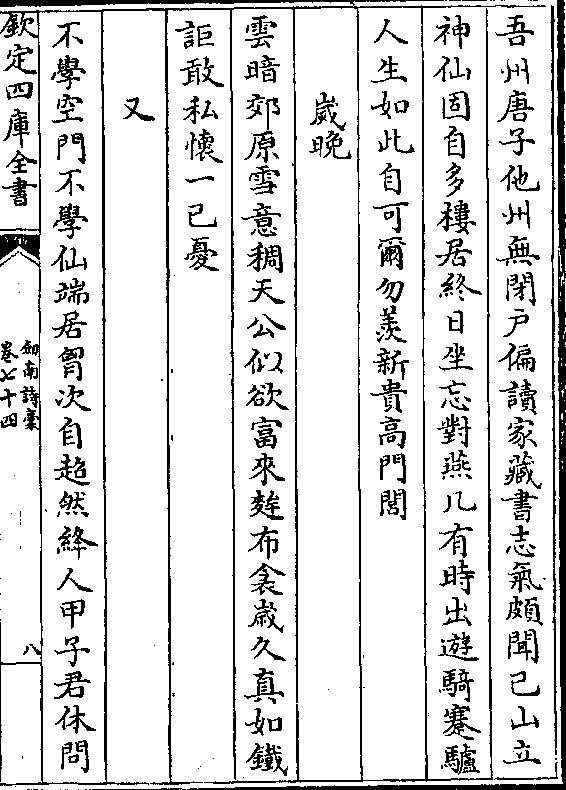 吾州唐子他州無閉戶偏讀家藏書志氣頗聞已山立
神仙固自多樓居終日坐忘對燕几有時出遊騎蹇驢
人生如此自可爾勿羨新貴高門閭
歲晚
雲暗郊原雪意稠天公似欲富來麰布衾歲久真如鐵
詎敢私懷一己憂
又
不學空門不學仙端居胷次自超然絳人甲子君休問
欽定四庫全書
劍南詩稾
卷七十四
八